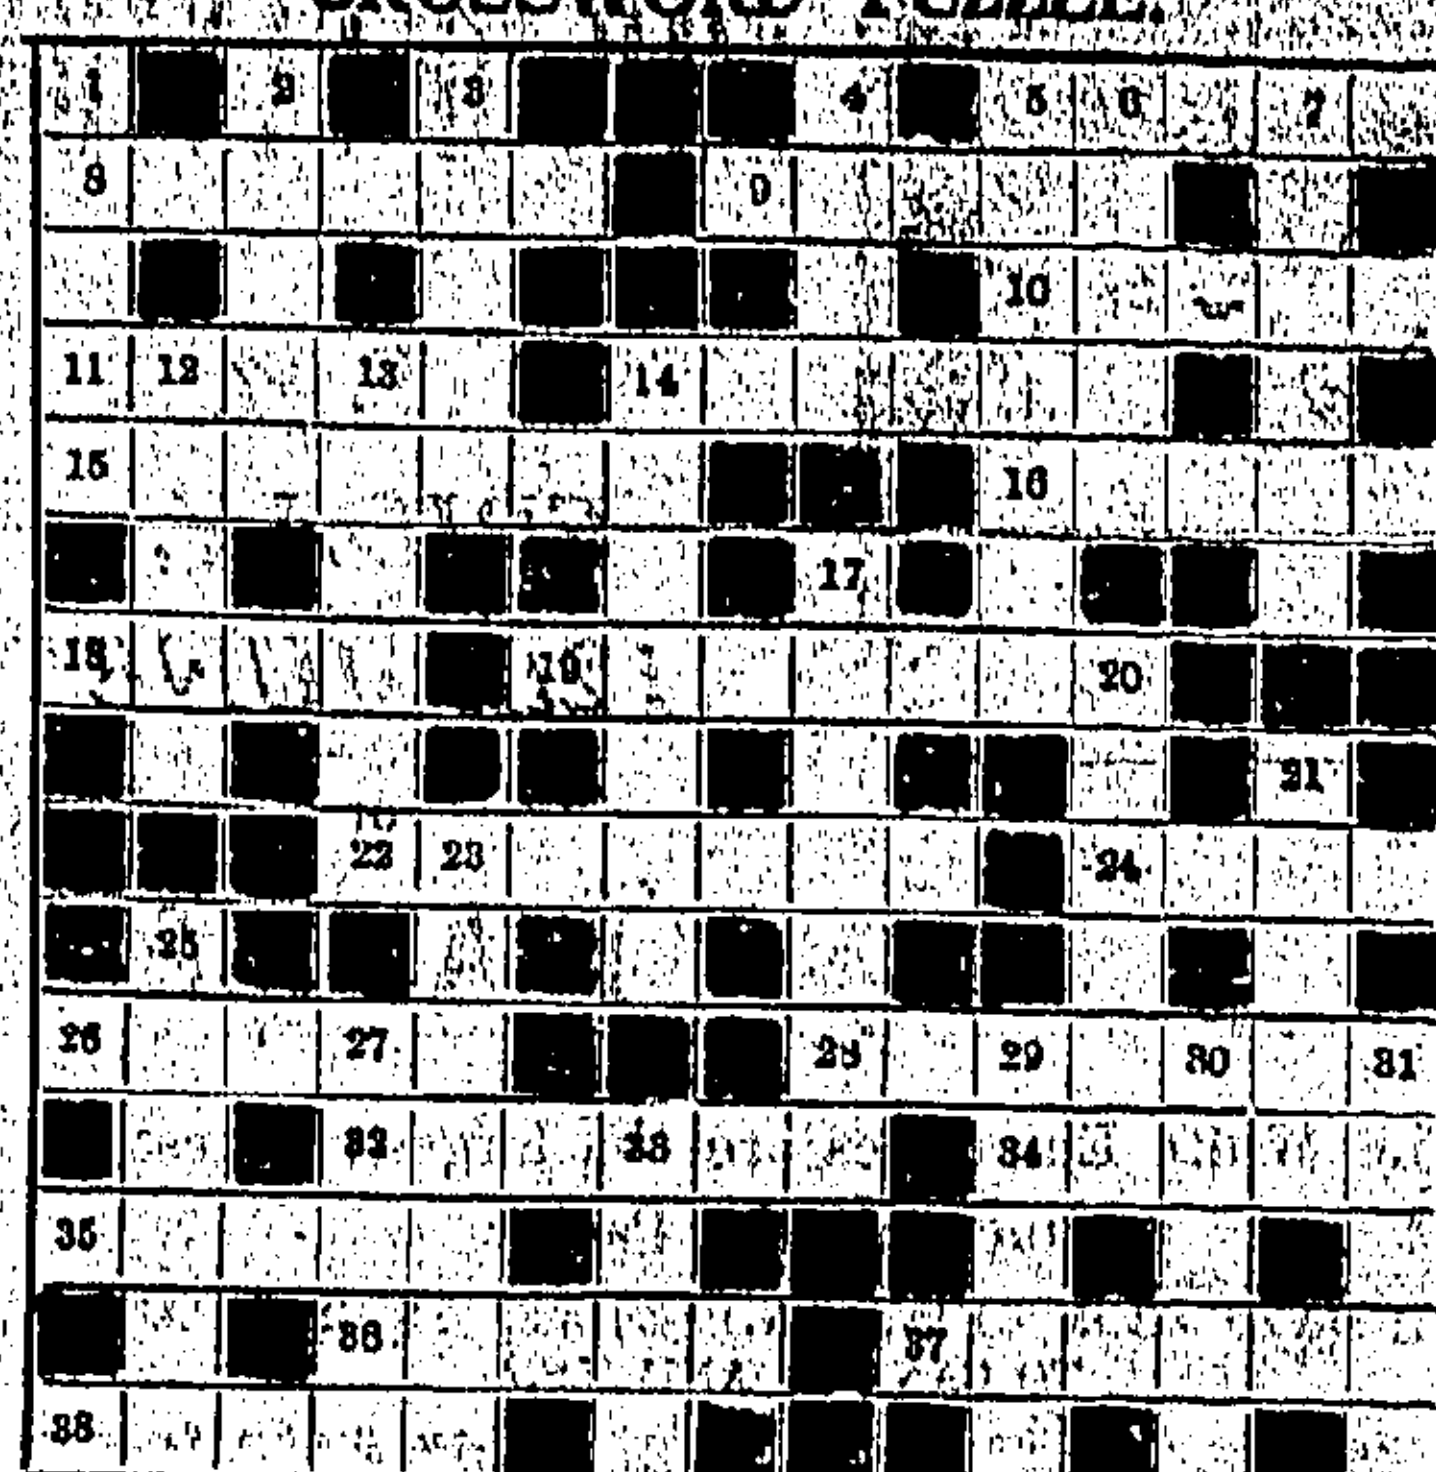 CROSSWORD PUZZLE.
1 2 3 4 5 6 7
8 9
10
11 12 13 14
15 16
17
18 19 20
21
22 23 24
25
26 27 28 29 30 31
32 33 34
35
36 37
38